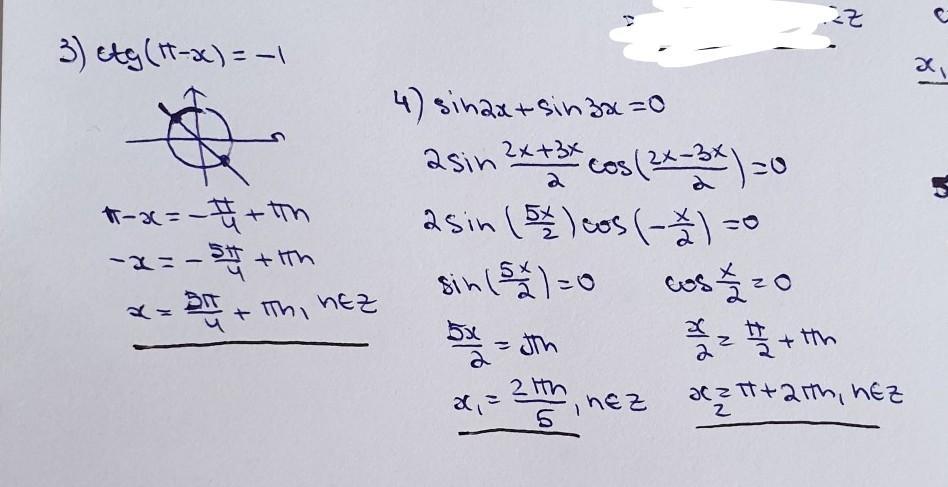 ∈Z
3) ctg(π-x) = -1
π-x = -π/4 + πn
-x = -5π/4 + πn
x = 5π/4 + πn, n∈Z
4) sin2x + sin3x = 0
2sin (2x+3x)/2 cos((2x-3x)/2) = 0
2sin(5x/2)cos(-x/2) = 0
sin(5x/2) = 0 cos x/2 = 0
5x/2 = πn x/2 = π/2 + πn
x₁ = 2πn/5, n∈Z x₂ = π + 2πn, n∈Z
x₁